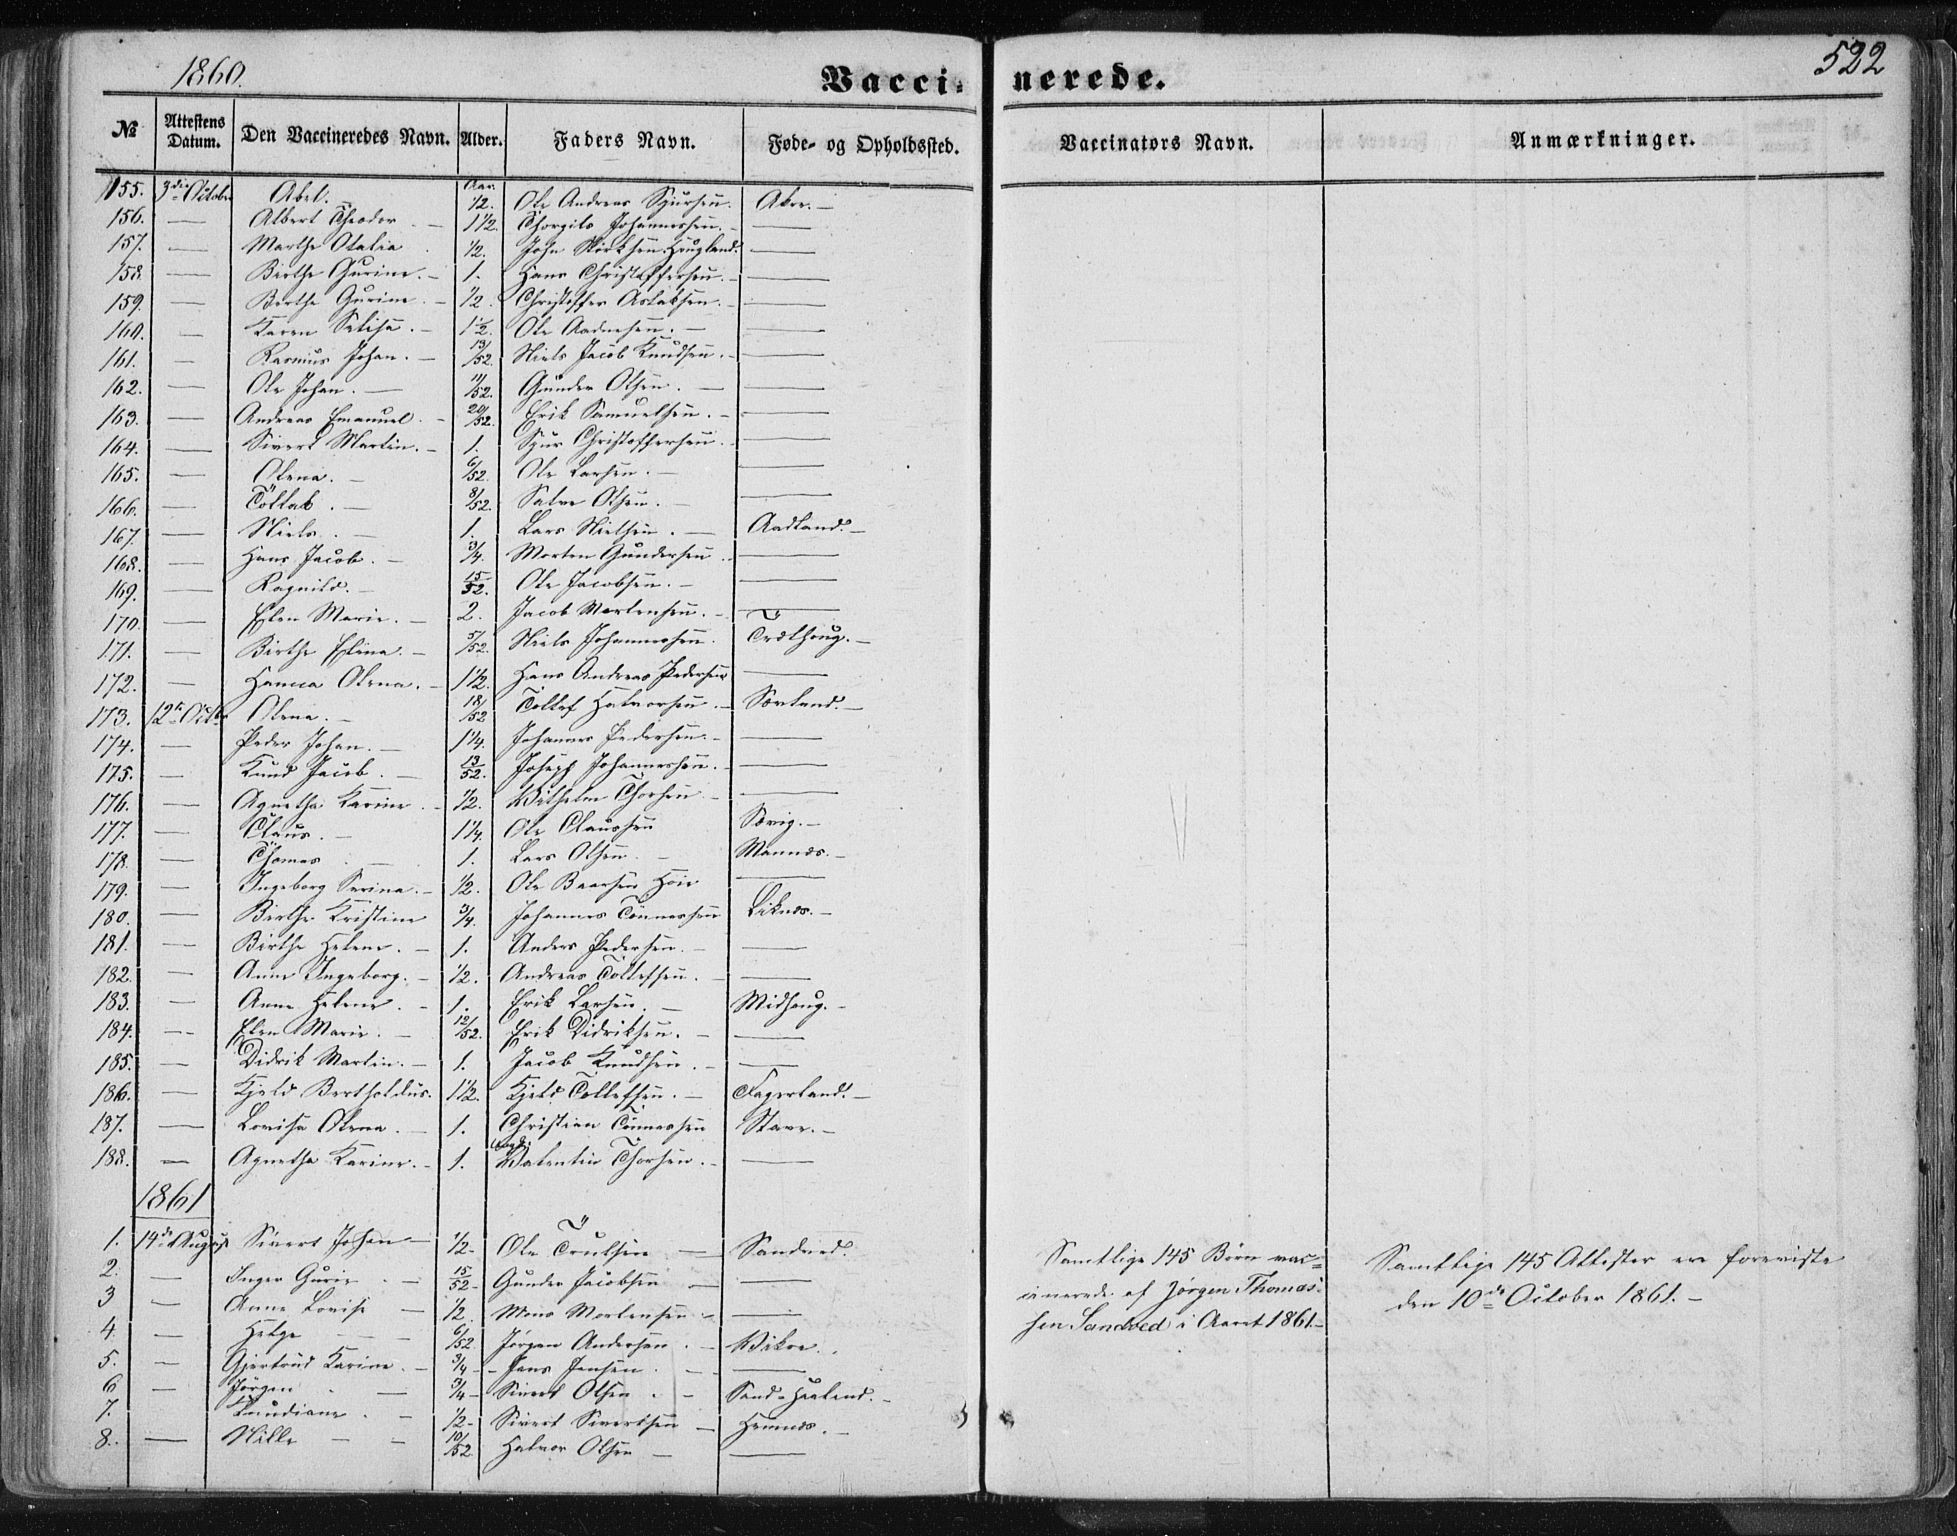 1860.
Vacci- nerede.
522
№ Attestens Datum. Den Vaccineredes Navn. Alder. Faders Navn. Føde- og Opholdssted. Vaccinators Navn. Anmærkninger.
155. 3die October Abel. Aar. 1/2. Ole Andreas Sjursen. Akre. —
156. — Albert Theodor. 1 1/2. Thorgils Johannessen. —
157. — Marthe Otalia 1/2. John Hougland. —
158. — Birthe Gurine. — 1. Hans Christoffersen. —
159. — Berthe Gurine. — 1/2. Christoffer Aslaksen. —
160. — Karen Selisa. — 1 1/2. Ole Aadnesen. — —
161. — Rasmus Johan. — 13/52. Niels Jacob Knudsen. —
162. — Ole Johan. — 11/52. Gunder Olsen. — —
163. — Andreas Emanuel. — 20/52. Erik Samuelsen. — —
164. — Sivert Martin. — 1. Sjur Christoffersen. —
165. — Olena. — 6/52. Ole Larsen. — —
166. — Tollak. — 8/52. Salve Olsen. — —
167. — Niels. — 1. Lars Nielsen. — Aadland. —
168. — Hans Jacob. — 3/4. Morten Gundersen —
169. — Ragnild. — 15/52. Ole Jacobsen. — —
170. — Elen Marie. — 2. Jacob Mortensen. — —
171. — Birthe Elina. — 5/52. Niels Johannessen. Trælhoug. —
172. — Hanna Olena. — 1 1/2. Hans Andreas Pedersen —
173. 12te Octbr Olena. — 18/52 Tollef Halvorsen. — Sørland. —
174. — Peder Johan. — 1 1/4. Johannes Pedersen. — —
175. — Knud Jacob. — 13/52. Joseph Johannessen. —
176. — Agnethe Karine. — 1/2. Wilhelm Thorsen — —
177. — Claus. — 1 1/4. Ole Claussen Sævig. —
178. — Thomas — 1. Lars Olsen. — Mannæs. —
179. — Ingeborg Serina. — 1/2. Ole Baarsen Høie —
180. — Birthe Kristine 3/4. Johannes Tönnessen Liknæs. —
181. — Birthe Helene. — 1. Anders Pedersen. — —
182. — Anne Ingeborg. — 1/2. Andreas Tollefsen. — —
183. — Anne Helene. — 1. Erik Larsen. — Midhoug. —
184. — Elen Marie. — 12/52. Erik Didriksen. — —
185. — Didrik Martin. — 1. Jacob Knudsen. — —
186. — Kjeld Bertholdus. 1 1/2. Kjeld Tollefsen. — Fagerland. —
187. — Lovise Olena. — 1. Christian Tönnessen Stave. —
188. — Agnethe Karine. — 1. Valentin Thorsen. — —
1861
1. 14de August Sivert Johan — 1/2- Ole Trulsen — Sandved.
2. — Inger Gurie — 15/52- Gunder Jacobsen — —
3 — Anne Lovise — 1/2. Mons Mortensen — —
4. — Helge — — 6/52. Jørgen Andersen. — Vikre.
5. — Gjertrud Karine. — 3/4 - Jens Jensen. —
6 — Jørgen. — 3/4 - Sivert Olsen. — Sand-Haaland. —
7. — Knudiane. — 1/2- Sivert Sivertsen — Hemnæs. —
8. — Nille — — 10/52 Halvor Olsen — —
Samtlige 145 Børn vac-
cinerede af Jørgen Thomas-
sen Sandved i Aaret 1861.-
Samtlige 145 Attester ere foreviste
den 10de October 1861. —